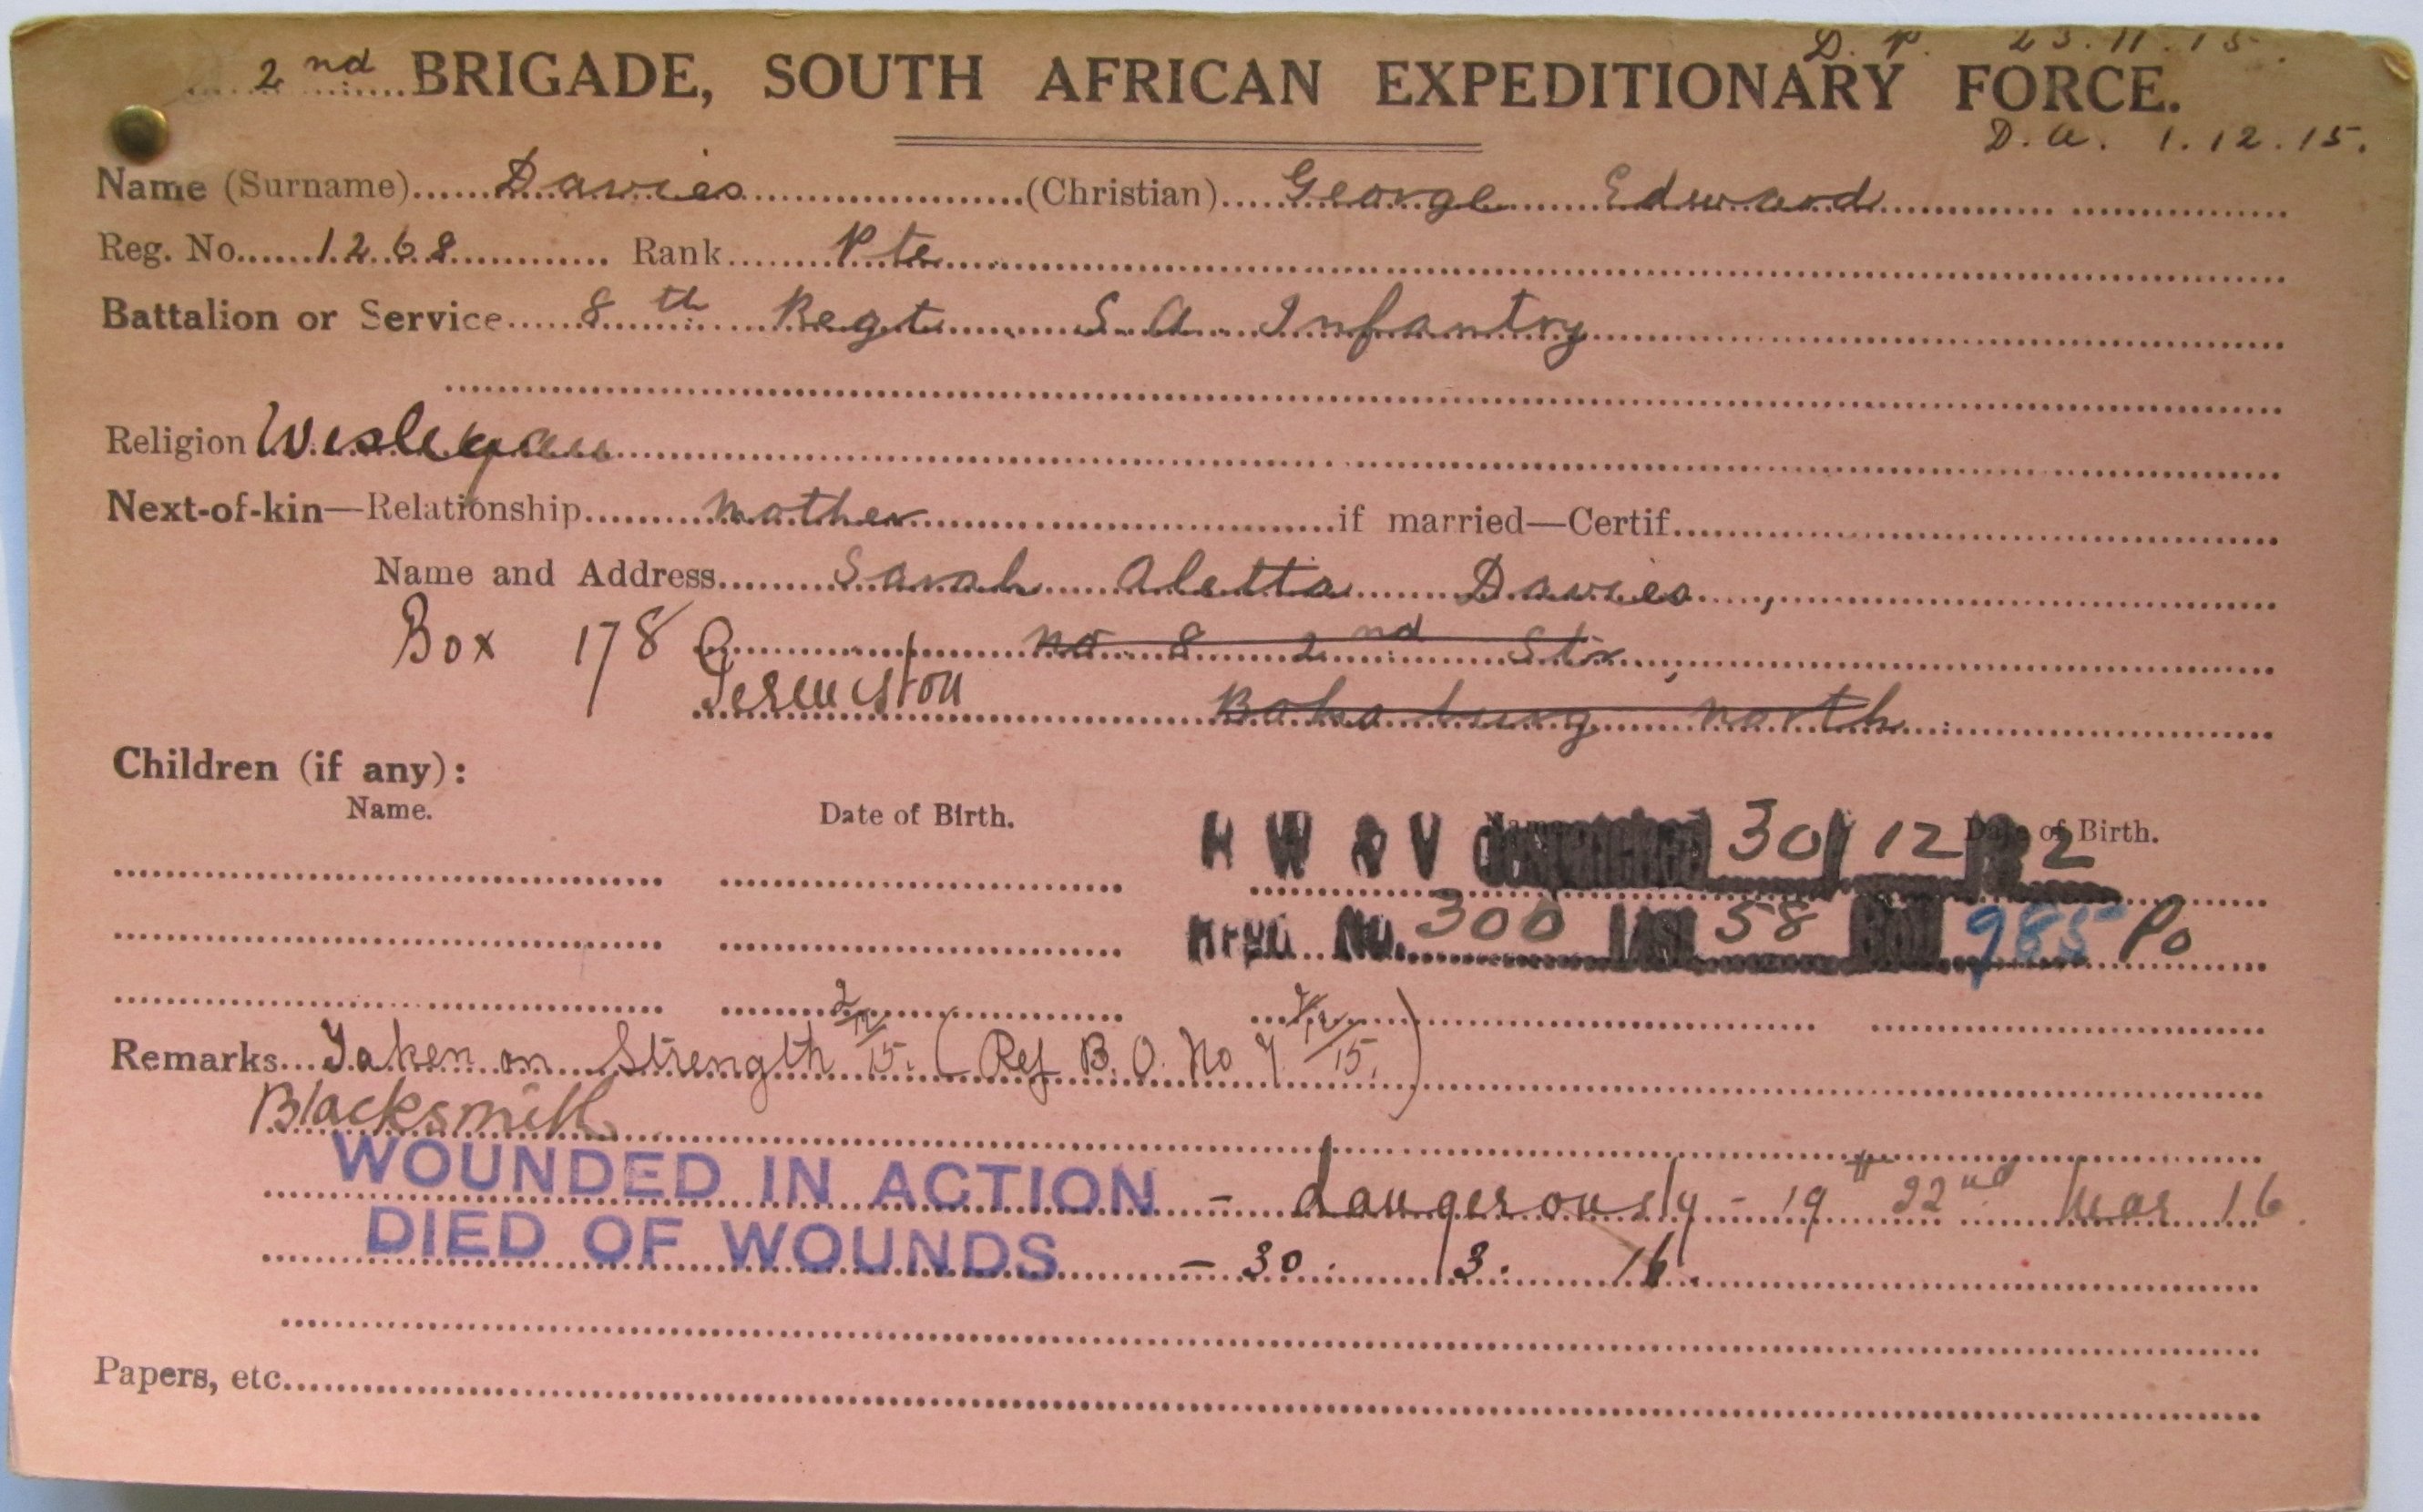 D. P. 23.11.15.
2nd BRIGADE, SOUTH AFRICAN EXPEDITIONARY FORCE.
D.A. 1.12.15.
Name (Surname) Davies (Christian) George Edward
Reg. No. 1268 Rank Pte
Battalion or Service 8th Regt S A Infantry
Religion Wesleyan
Next-of-kin—Relationship mother if married—Certif
Name and Address Sarah Aletta Davies,
Box 178 No 8 2nd Str,
Germiston Boksburg North
Children (if any):
Name. Date of Birth. Name. Date of Birth.
H W & V despatched 30/12/22
No. 300 List 58 Roll 985 Po
Remarks Taken on Strength 2/12/15. (Ref B.O. No 7 /12/15.)
Blacksmith
WOUNDED IN ACTION - dangerously - 19th 22nd Mar 16.
DIED OF WOUNDS - 30. 3. 16.
Papers, etc.